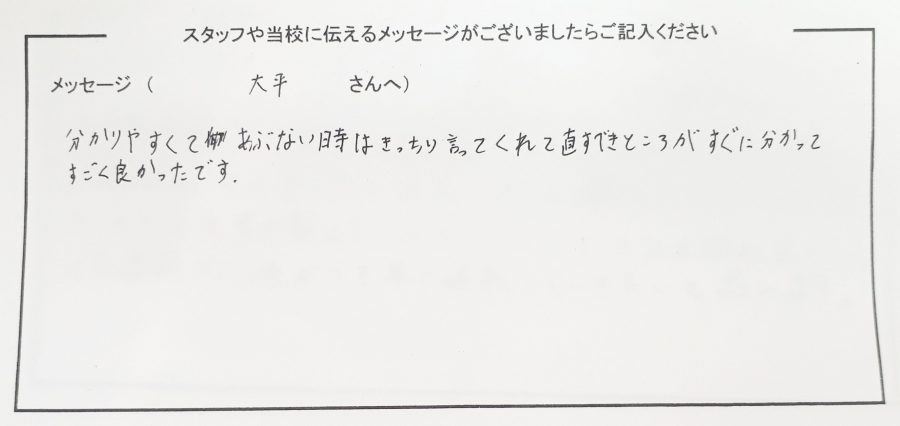 スタッフや当校に伝えるメッセージがございましたらご記入ください
メッセージ（ 大平 さんへ）
分かりやすくて あぶない時はきっちり言ってくれて直すべきところがすぐに分かって
すごく良かったです.